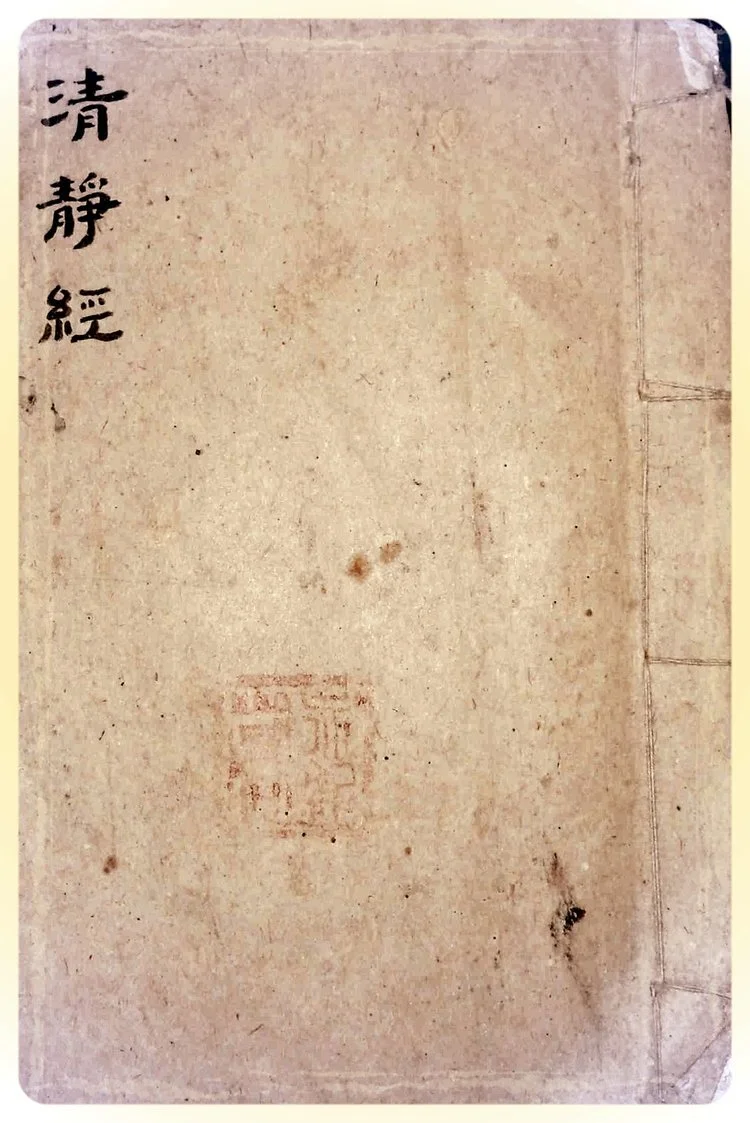 清靜經